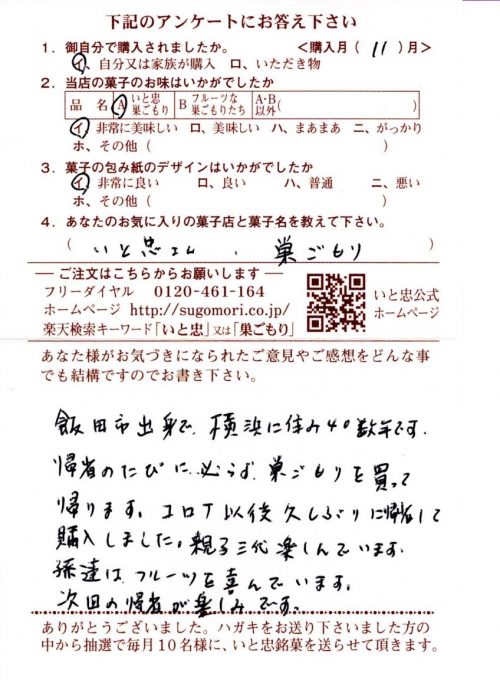 下記のアンケートにお答え下さい
1．御自分で購入されましたか。 ＜購入月（ 11 ）月＞
イ、自分又は家族が購入 ロ、いただき物
2．当店の菓子のお味はいかがでしたか
品 名 A いと忠巣ごもり B フルーツな巣ごもりたち A・B以外（ ）
イ、非常に美味しい ロ、美味しい ハ、まあまあ ニ、がっかり
ホ、その他（ ）
3．菓子の包み紙のデザインはいかがでしたか
イ、非常に良い ロ、良い ハ、普通 ニ、悪い
ホ、その他（ ）
4．あなたのお気に入りの菓子店と菓子名を教えて下さい。
（ いと忠さん 、 巣ごもり ）
ご注文はこちらからお願いします
フリーダイヤル 0120-461-164
ホームページ http://sugomori.co.jp/
楽天検索キーワード「いと忠」又は「巣ごもり」
いと忠公式
ホームページ
あなた様がお気づきになられたご意見やご感想をどんな事
でも結構ですのでお書き下さい。
飯田市出身で、横浜に住み40数年です．
帰省のたびに必らず、巣ごもりを買って
帰ります。コロナ以後久しぶりに帰省して
購入しました。親子三代楽しんでいます．
孫達は、フルーツを喜んでいます．
次回の帰省が楽しみです。
ありがとうございました。ハガキをお送り下さいました方の
中から抽選で毎月10名様に、いと忠銘菓を送らせて頂きます。